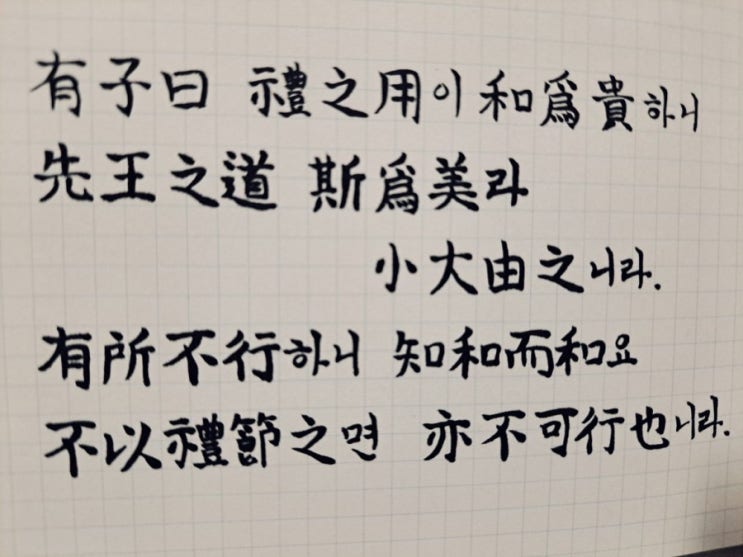 有子曰 禮之用이 和爲貴하니
先王之道 斯爲美라
小大由之니라.
有所不行하니 知和而和요
不以禮節之면 亦不可行也니라.